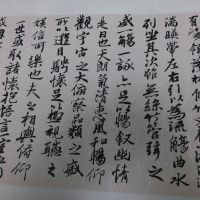 湍暎帶左右引以為流觴曲水
列坐其次雖無絲竹管弦之
盛一觴一詠亦足以暢敘幽情
是日也天朗氣清惠風和暢仰
觀宇宙之大俯察品類之盛
所以遊目騁懷足以極視聽之
娛信可樂也夫人之相與俯仰
一世或取諸懷抱悟言一室